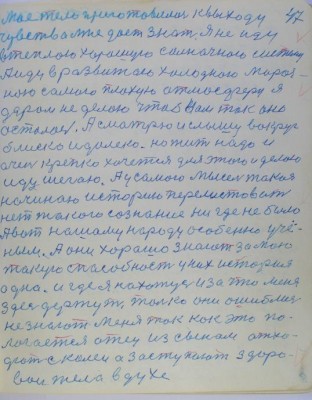 Мое тело приготовилось к выходу 47
чувства уже дает знать Я не иду
в теплою хорошую солнечного систему
А иду в развитою холодного мароз-
ною самого плохую атмосферу я
даром не делаю чтоб Вам так оно
осталось. А сматрю и слышу вокруг
блиско и далеко. но жит надо и
очен крепко хочется для этого и делаю
иду шегаю. А у самого мысел такая
начинаю историю перелистоват
нет такого сознание ни где не было
А вот нашаму народу особенно учё-
ным. А они хорошо знают за мою
такую способност у них история
одна. и где я нахожус и за што меня
здес держут, толко они ошиблис
не знают меня так как это по-
логается отец из своим отхо-
дют с колеи а заступают здоро-
вои тела в духе